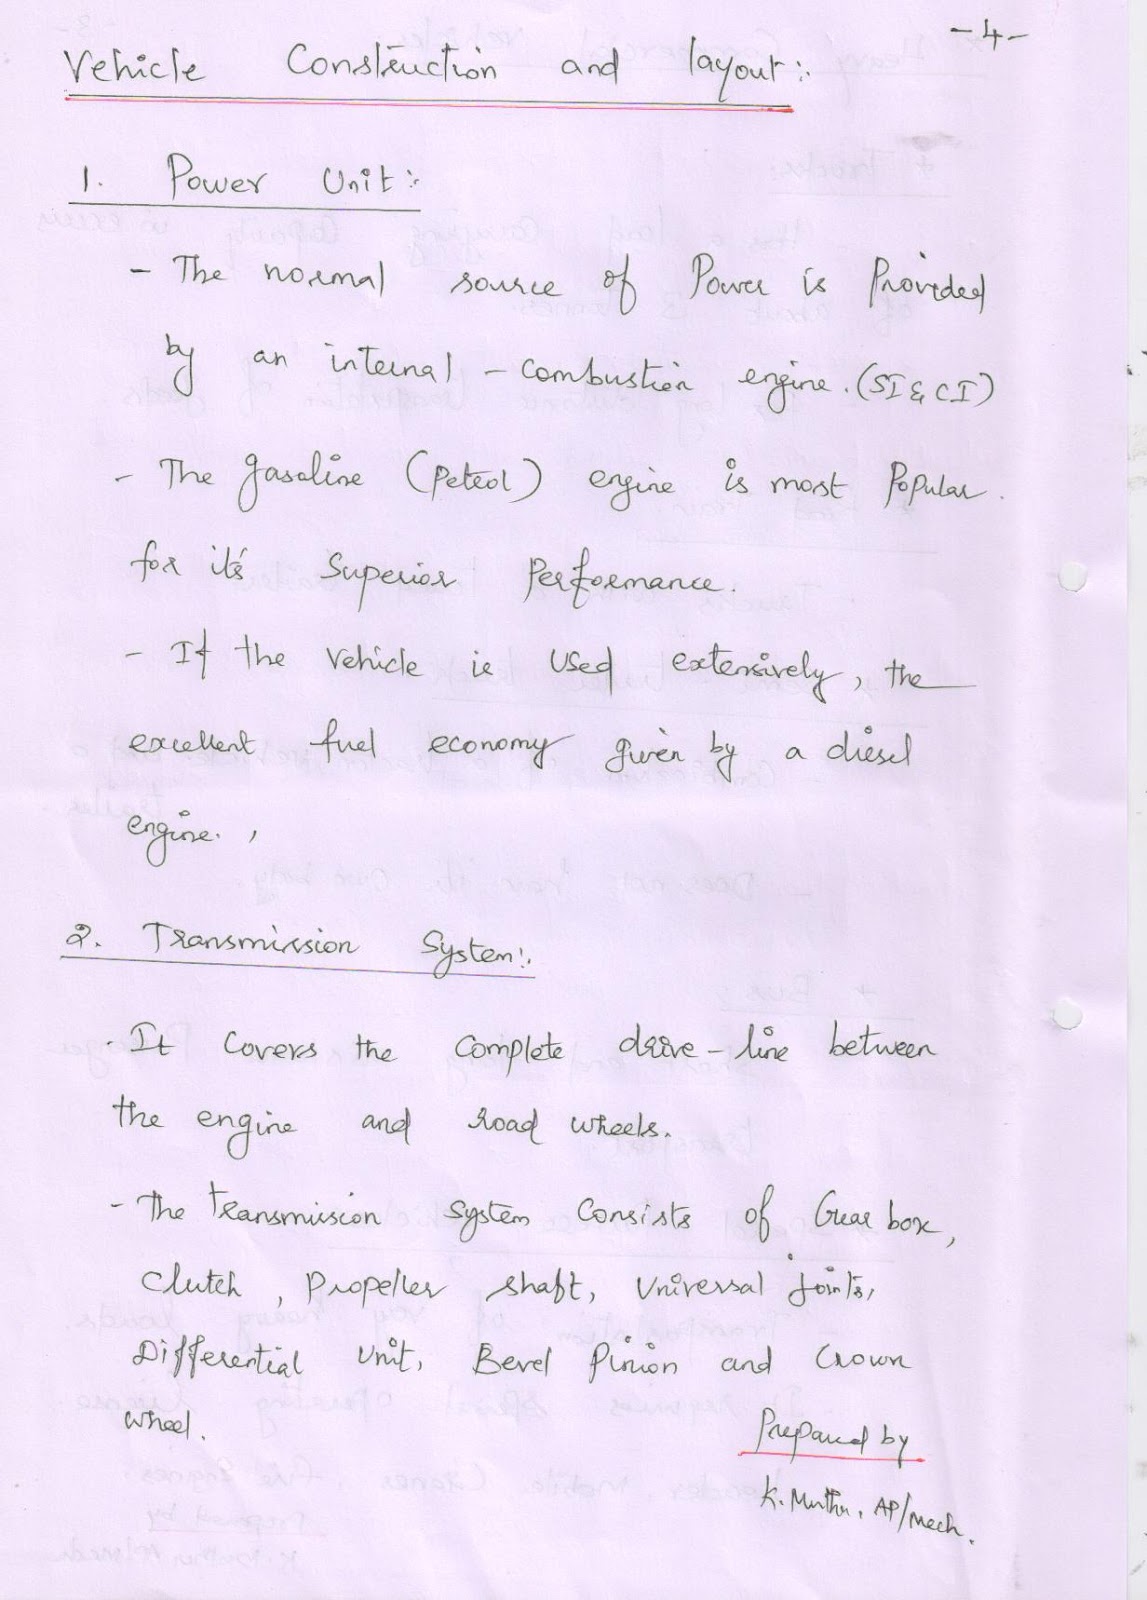 -4-
Vehicle Construction and layout:-
1. Power Unit:-
- The normal source of Power is Provided
by an internal - combustion engine. (SI & CI)
- The gasoline (Petrol) engine is most Popular
for it's Superior Performance.
- If the vehicle is used extensively, the
excellent fuel economy given by a diesel
engine.,
2. Transmission System:-
- It covers the complete drive-line between
the engine and road wheels.
- The transmission system consists of Gear box,
Clutch, Propeller shaft, Universal joints,
Differential Unit, Bevel Pinion and Crown
wheel.
Prepared by
K. Muthu, AP/Mech.